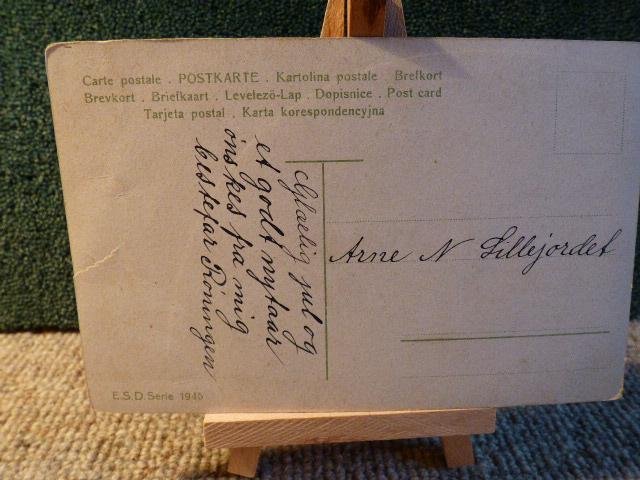 Carte postale . POSTKARTE . Kartolina postale Brefkort
Brevkort . Briefkaart . Levelezö-Lap . Dopisnice . Post card
Tarjeta postal . Karta korespondencyjna
Glaelig jul og
et godt nytaar
önskes fra mig
bestefar Röningen
Arne N Lillejordet
E.S.D. Serie 1945